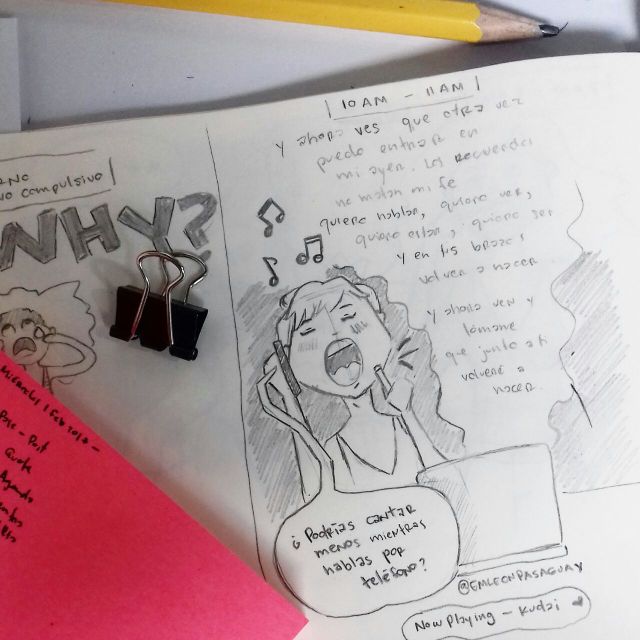 WHY?
vo compulsivo
10 AM - 11 AM
y ahora ves que otra vez
puedo entrar en
mi ayer. Los recuerdos
no matan mi fe
quiero hablar, quiero ver,
quiero estar, quiero ser
y en tus brazos
volver a nacer
y ahora ven y
tómame
que junto a ti
volveré a
nacer.
¿Podrías cantar
menos mientras
hablas por
teléfono?
@EMLEONPASAGUAY
Now Playing - Kudai
Pase - Post
Quote
Agenda